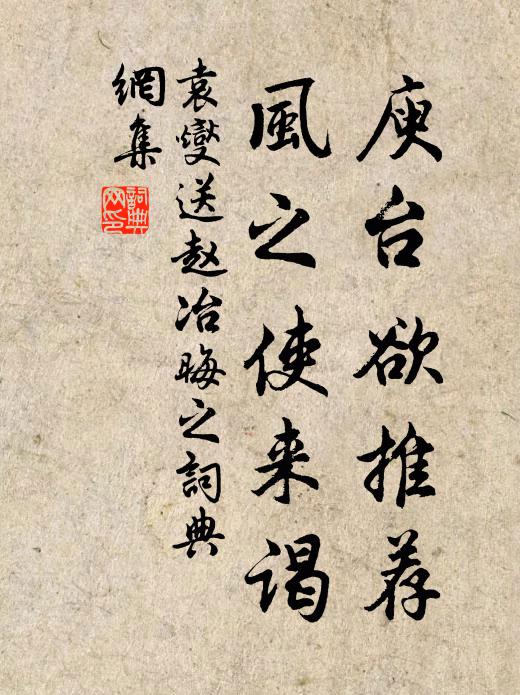 庾台欲推荐
風之使来谒
袁燮送赵冶晦之詞典
網集
詞典网印